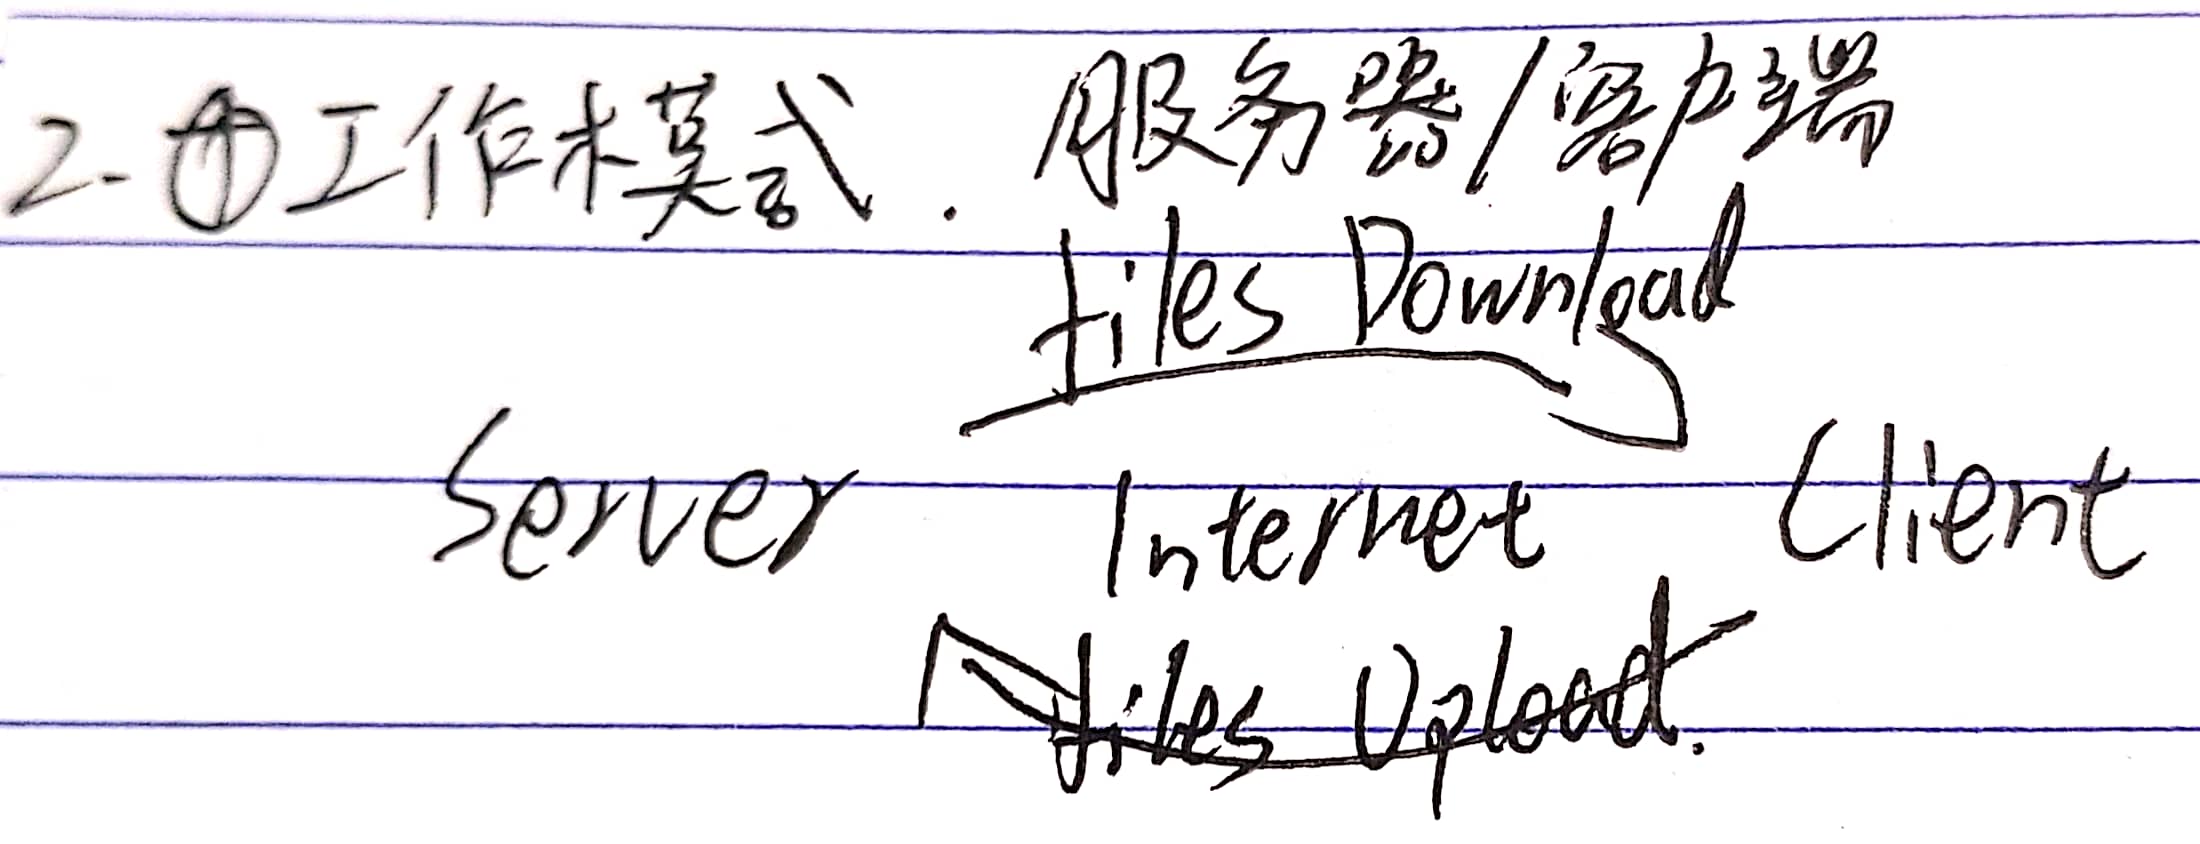 2. ①工作模式. 服务器/客户端
files Download
Server Internet Client
files Upload.